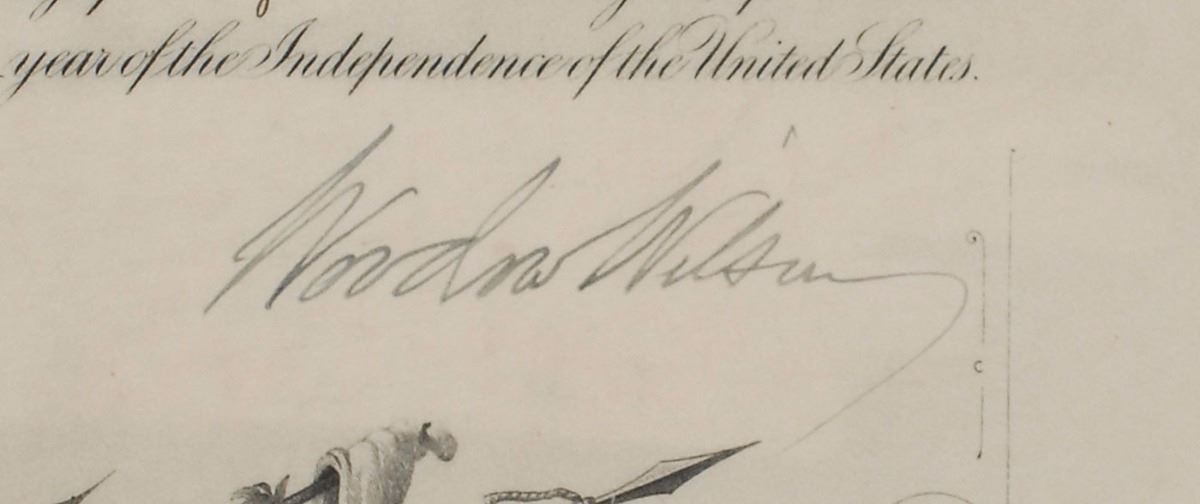 year of the Independence of the United States.
Woodrow Wilson